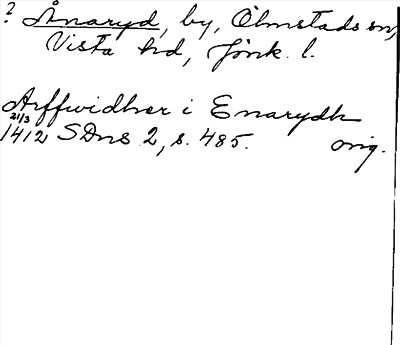 ? Ånaryd, by, Ölmstads sn,
Vista hd, Jönk. l.
Arffwidher i Enarydh
21/3
1412 SDns 2, s. 485. orig.